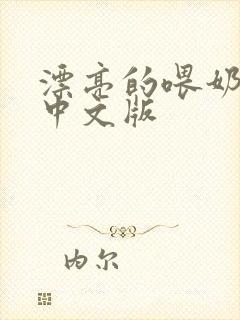 漂亮的喂奶
中文版
内尔